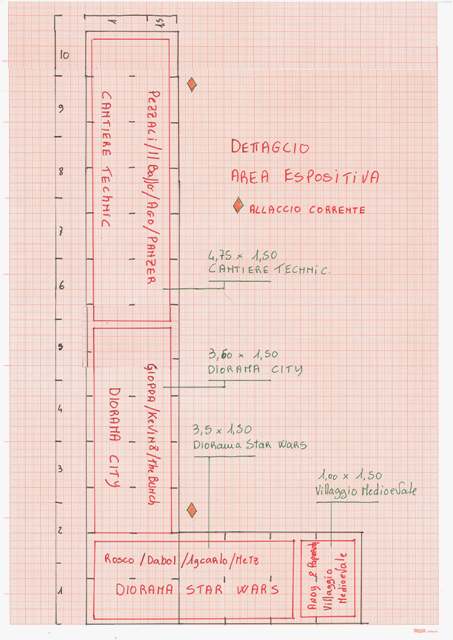 1
75
10
9
8
7
6
5
4
3
2
1
CANTIERE TECHNIC
PEZZACI/Il Ballo/AGO/PANZER
DETTAGLIO
AREA ESPOSITIVA
ALLACCIO CORRENTE
4,75 x 1,50
CANTIERE TECHNIC
3,60 x 1,50
DIORAMA CITY
GIOPPA/KEVIN8/THE BUNCH
DIORAMA CITY
3,5 x 1,50
Diorama STAR WARS
1,00 x 1,50
Villaggio Medioevale
ROSCO/DABOL/Agcarlo/Metz
DIORAMA STAR WARS
Villaggio
Medioevale